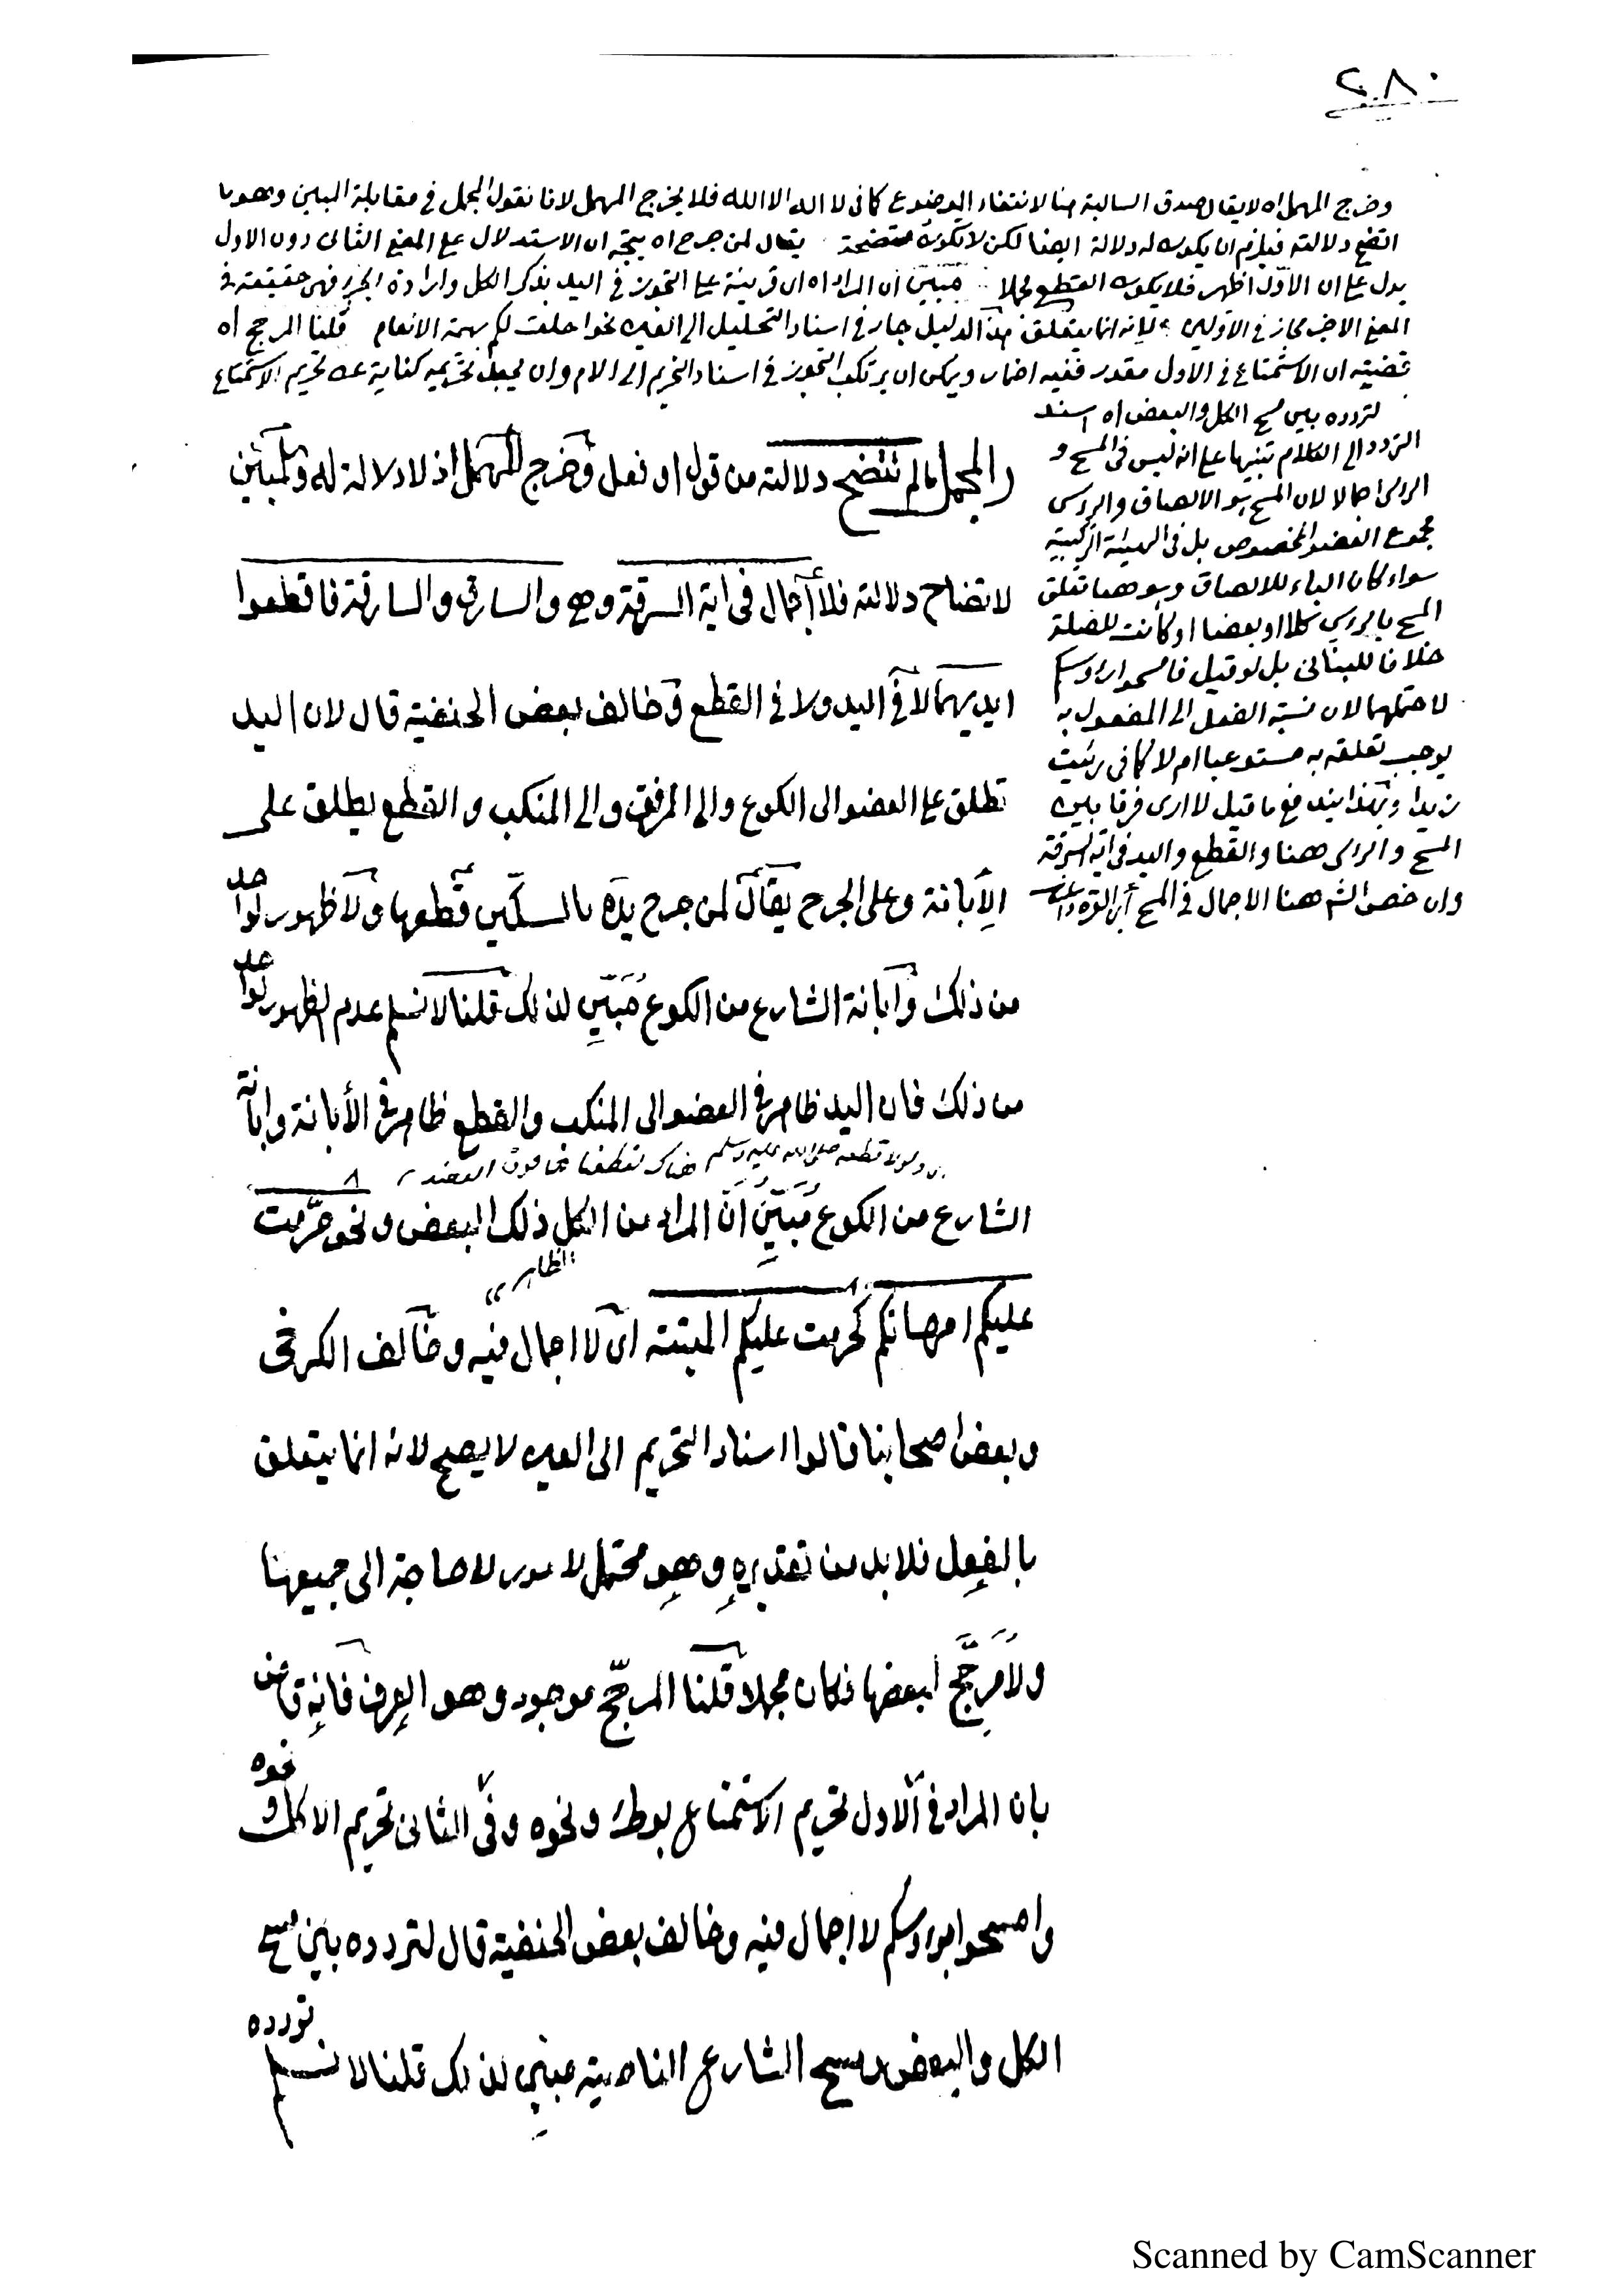 ٢٨٠
وخرج المهمل اه لايقال صدق السالبة هنا لانتفاء الموضوع كما في لا اله الا الله فلا يخرج المهمل لانا نقول المجمل في مقابلة المبين وهو ما
اتضح دلالته فيلزم ان يكون له دلالة ايضا لكن لا تكون متضحة يقال لمن جرح اه يتجه ان الاستدلال على المعنى الثاني دون الاول
يدل على ان الاول اظهر فلا يكون القطع مجملا مبين ان المراد اه اى قرينة على التجوز في اليد بذكر الكل وارادة الجزء فهي حقيقة في
المعنى الاخير مجاز في الاولين لانه انما يتعلق هذا الدليل جار في اسناد التحليل الى العين نحو احلت لكم بهيمة الانعام قلنا المرجح اه
قضيته ان الاستمتاع في الاول مقدر ففيه اضمار ويمكن ان يرتكب التجوز في اسناد التحريم الى الام وان يجعل تحريمه كناية عن تحريم الاستمتاع
لتردده بين مسح الكل والبعض اه اسند
التردد الى الكلام تنبيها على انه ليس في المسح و
الرأس اجمالا لان المسح هو الالصاق والرأس
مجموع العضو المخصوص بل في الهيئة التركيبية
سواء كان الباء للالصاق وهو هنا تعلق
المسح بالرأس كلا او بعضا او كانت للصلة
خلافا للبناني بل لو قيل فامسحوا رؤسكم
لاحتملهما لان نسبة الفعل الى المفعول به
يوجب تعلقه به مستوعبا ام لا كما في رئيت
زيدا وبهذا يندفع ما قيل لا ارى فرقا بين
المسح والرأس ههنا والقطع واليد في اية السرقة
وان خص الشم ههنا الاجمال في المسح
والمجمل مالم تتضح دلالته من قول او فعل وخرج المهمل اذ لا دلالة له والمبين
لاتضاح دلالته فلا اجمال في اية السرقة وهي والسارق والسارقة فاقطعوا
ايديهما لا في اليد ولا في القطع وخالف بعض الحنفية قال لان اليد
تطلق على العضو الى الكوع والى المرفق والى المنكب والقطع يطلق على
الإبانة وعلى الجرح يقال لمن جرح يده بالسكين قطعها ولا ظهور لواحد
من ذلك وابانة الشارع من الكوع مُبَيِّن لذلك قلنا لا نسلم عدم الظهور لواحد
من ذلك فان اليد ظاهر في العضو الى المنكب والقطع ظاهر في الأبانة وابانة
ولولا قطعه صلى الله عليه وسلم هناك لقطعنا
الشارع من الكوع مُبَيِّن أنّ المراد من الكل ذلك البعض ونحو حرّمت
الظاهر
عليكم امهاتكم كحرمت عليكم الميتة اى لا اجمال فيه وخالف الكرخى
وبعض اصحابنا قالوا اسناد التحريم الى العين لا يصح لانه انما يتعلق
بالفعل فلا بد من تقديره وهو محتمل لامور لا حاجة الى جميعها
ولا مرجّح لبعضها فكان مجملا قلنا المرجّح موجود وهو العرف فإنه قاض
بان المراد في الاول تحريم الاستمتاع بوطئ ونحوه وفى الثانى تحريم الاكل و نحوه
وامسحوا برؤسكم لا اجمال فيه وخالف بعض الحنفية قال لتردده بين مسح
الكل والبعض ومسح الشارع الناصية مبين لذلك قلنا لا نسلم تردده
Scanned by CamScanner